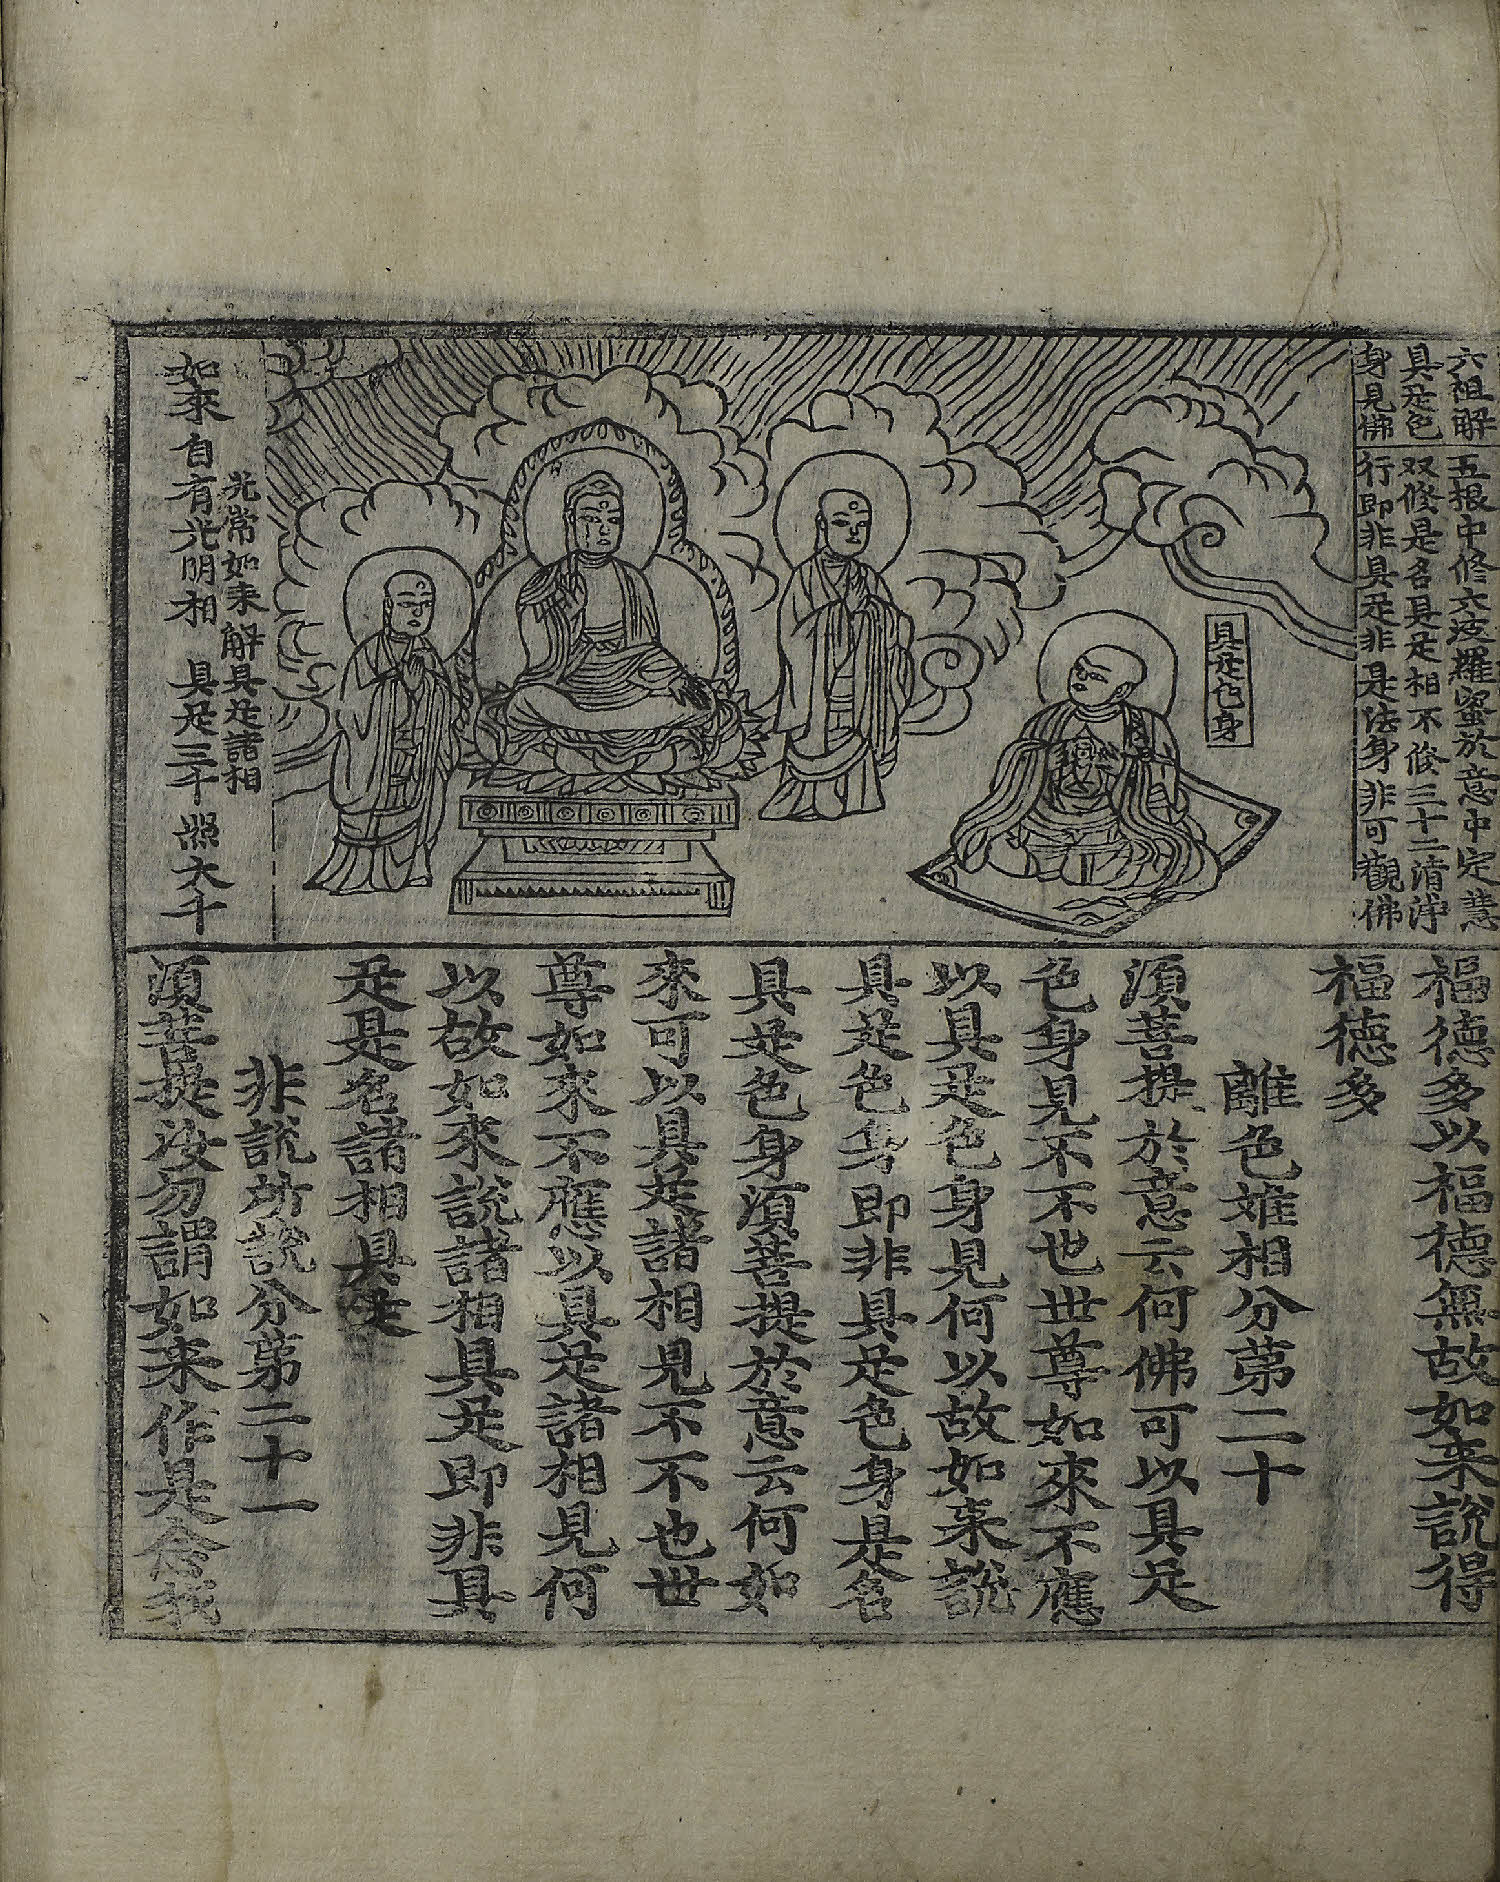 六祖解
具足色
身見佛
五根中修六波羅蜜於意中定慧
双修是名具足相不修三十二清淨
行即非具足非是法身非可觀佛
具足色身
光常如来 解具足諸相
如來自有光明相 具足三千照大千
福德多以福德無故如来說得
福德多
離色離相分第二十
湏菩提於意云何佛可以具足
色身見不不也世尊如來不應
以具足色身見何以故如来說
具足色身即非具足色身是名
具足色身湏菩提於意云何如
來可以具足諸相見不不也世
尊如來不應以具足諸相見何
以故如來說諸相具足即非具
足是名諸相具足
非說所說分第二十一
湏菩提汝勿謂如来作是念我